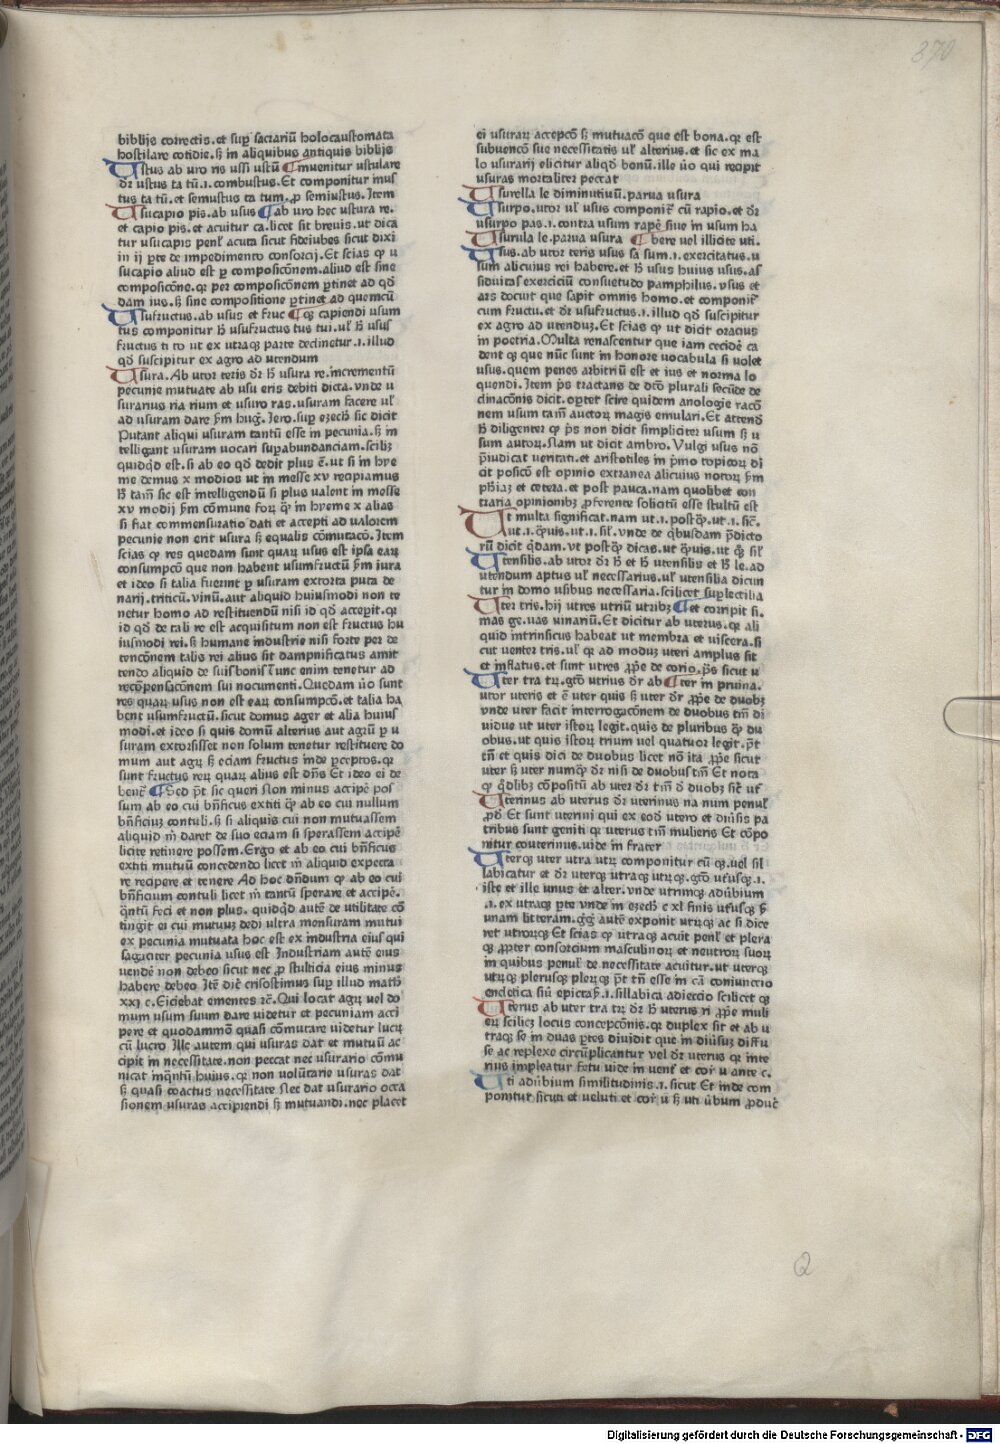 370
biblijs correctis.et suꝑ sactariū holocaustomata
hostilare cotidie.sꝫ in aliquibus antiquis biblijs
Ustus ab uro ris ussi ustū ¶inuenitur ustulare
dr̄ ustus ta tū.i.combustus.Et componitur inus
tus ta tū.et semustus ta tum.ꝓ semiustus.Item
Usucapio pis.ab usus ¶ab uro hec ustura re.
et capio pis.et acuitur ca.licet sit breuis.ut dica
tur usucapis penl̄ acuta sicut fideiubes sicut dixi
in ij ꝑte de impedimento consorcij.Et scias ꝙ u
sucapio aliud est ꝑ composicōnem.aliud est sine
composicōne.qꝛ per composicōnem ꝑtinet ad qd̄
dam ius.sꝫ sine compositione ꝑtinet ad quemcū
Usufructus.ab usus et fruc ¶qꝫ capiendi usum
tus componitur hꝰ usufructus tus tui.ul̄ hꝰ usuſ
fructus ti to ut ex utraqꝫ parte declinetur.i.illud
qd̄ suscipitur ex agro ad utendum
Usura.Ab utor teris dr̄ hꝰ usura re.incrementū
pecunie mutuate ab usu eris debiti dicta.vnde u
surarius ria rium et usuro ras.usuram facere ul̄
ad usuram dare ẜm hug̅.Jero.suꝑ ezech̄ sic dicit
Putant aliqui usuram tantū esse in pecunia.sꝫ in
telligant usuram uocari suꝑabundanciam.scilꝫ
quidqd̄ est.si ab eo qd̄ dedit plus ē.ut si in hye
me demus x modios ut in messe xv recipiamus
hꝰ tam̄ sic est intelligendū si plus ualent in messe
xv modij ẜm cōmune forꝝ ꝙ̄ in hyeme x alias
si fiat commensuratio dati et accepti ad ualorem
pecunie non erit usura sꝫ equalis cōmutacō.Item
scias ꝙ res quedam sunt quarꝝ usus est ipsa earꝝ
consumpcō que non habent usumfructū ẜm iura
et ideo si talia fuerint ꝑ usuram extorta puta de
narij.triticū.vinū.aut aliquid huiusmodi non te
netur homo ad restituendū nisi id qd̄ accepit.qꝛ
id qd̄ de tali re est acquisitum non est fructus hu
iusmodi rei.sꝫ humane industrie nisi forte per de
tencōnem talis rei alius sit dampnificatus amit
tendo aliquid de suis bonis Tunc enim tenetur ad
recōpensacōnem sui nocumenti.Quedam ūo sunt
res quarꝝ usus non est earꝝ consumpcō.et talia ha
bent usumfructū.sicut domus ager et alia huius
modi.et ideo si quis domū alterius aut agrū ꝑ u
suram extorsisset non solum tenetur restituere do
mum aut agꝝ sꝫ eciam fructus inde ꝑceptos.qꝛ
sunt fructus reꝝ quarꝝ alius est dn̄s Et ideo ei de
bent̄ ¶Sed p̄t sic queri Non minus accipe᷑ pos
sum ab eo cui bn̄ficus extiti ꝙ̄ ab eo cui nullum
bn̄ficiuꝫ contuli.sꝫ si aliquis cui non mutuassem
aliquid m̄ daret de suo eciam si sperassem accipe᷑
licite retinere possem.Ergo et ab eo cui bn̄ficus
extiti mutuū concedendo licet m̄ aliquid expecta
re recipere et tenere Ad hoc dn̄dum ꝙ ab eo cui
bn̄ficium contuli licet m̄ tantū sperare et accipe᷑.
qn̄tū feci et non plus.quidqd̄ autē de utilitate cō
tingit ei cui mutuuꝫ dedi ultra mensuram mutui
ex pecunia mutuata hoc est ex industria eius qui
sagaciter pecunia usus est Industriam autē eius
uende᷑ non debeo sicut nec ꝓ stulticia eius minus
habere debeo Itē dic̄ crisostimus suꝑ illud math̄
xxi c.Eiciebat ementes ⁊c̄.Qui locat agꝝ uel do
mum usum suum dare uidetur et pecuniam acci
pere et quodammō quasi cōmutare uidetur lucꝝ
cū lucro Ille autem qui usuras dat et mutuū ac
cipit in necessitate.non peccat nec usurario cōmu
nicat inqn̄tū huius.qꝛ non volūtarie usuras dat
sꝫ quasi coactus necessitate Nec dat usurario occa
sionem usuras accipiendi sꝫ mutuandi.nec placet
ei usurarꝝ accepcō sꝫ mutuacō que est bona.qꝛ est
subuencō sue necessitatis ul̄ alterius.et sic ex ma
lo usurarij elicitur aliqd̄ bonū.ille ūo qui recipit
usuras mortaliter peccat
Usurella le diminutiuū.parua usura
Usurpo.utor ul̄ usus componit᷑ cū rapio.et dr̄
usurpo pas.i.contra usum rape᷑ siue in usum ha
Usurula le.parua usura ¶bere uel illicite uti.
Usus.ab utor teris usus sa sum.i.exercitatus.u
sum alicuius rei habere.et hꝰ usus huius usus.aſ
siduitas exerciciū consuetudo pamphilus.vsus et
ars docuit que sapit omnis homo.et componit᷑
cum fructu.et dr̄ usufructus.i.illud qd̄ suscipitur
ex agro ad utenduꝫ.Et scias ꝙ ut dicit oracius
in poetria.Multa renascentur que iam cecide᷑ ca
dent qꝫ que nūc sunt in honore uocabula si uolet
usus.quem penes arbitriū est et ius et norma lo
quendi.Item p̄s tractans de dcō plurali secūde de
clinacōnis dicit.oꝑtet scire quidem anologie racō
nem usum tam̄ auctoꝝ magis emulari.Et attend̄
hꝰ diligenter ꝙ p̄s non dicit simpliciter usum sꝫ u
sum autoꝝ.Nam ut dicit ambro.Vulgi usus nō
p̄iudicat ueritati.et aristotiles in p̄mo topicoꝝ di
cit posicō est opinio extranea alicuius notoꝝ ẜm
ph̄iaꝫ et cetera.et post pauca.nam quolibet con
traria opinionibꝫ ꝓferente solicitū esse stultū est
Ut multa significat.nam ut.i.postꝙ̄.ut.i.sic̄.
ut.i.ꝙ̄uis.ut.i.sil̄.vnde de qͥbusdam p̄dicto
rū dicit qͥdam.vt postꝙ̄ dicas.ut ꝙ̄uis.ut qͣ sil̄
Utensilis.ab utor dr̄ hꝰ et hꝰ utensilis et hꝰ le.ad
utendum aptus ul̄ necessarius.ul̄ utensilia dicun
tur in domo usibus necessaria.scilicet suꝑlectilia
Uter tris.hij utres utriū utribꝫ ¶et corripit si.
mas ge.uas uinariū.Et dicitur ab uterus.qꝛ ali
quid intrinsicus habeat ut membra et uiscera.si
cut uenter tris.ul̄ qꝛ ad moduꝫ uteri amplus sit
et inflatus.et sunt utres ꝓpe᷑ de corio.p̄s sicut u
Uter tra trꝝ.gtō utrius dr̄ ab ¶ter in pruina.
utor uteris et ē uter quis sꝫ uter dr̄ ꝓpe᷑ de duobꝫ
vnde uter facit interrogacōnem de duobus tm̄ di
uidue ut uter istoꝝ legit.quis de pluribus ꝙ̄ du
obus.ut quis istoꝝ trium uel quatuor legit.p̄t
tn̄ et quis dici de duobus licet nō ita ꝓpe᷑ sicut
uter sꝫ uter numqͣ dr̄ nisi de duobus tm̄ Et nota
ꝙ qd̄libꝫ cōpositū ab uter dr̄ tm̄ d̄ duobꝫ sic̄ ut᷑
Uterinus ab uterus dr̄ uterinus na num penul̄
ꝓd̄ Et sunt uterini qui ex eod̄ utero et diūsis pa
tribus sunt geniti qꝛ uterus tm̄ mulieris Et cōpo
nitur couterinus.uide in frater
Uterqꝫ uter utra utrꝝ componitur cū qꝫ.uel sil
labicatur et dr̄ uterqꝫ utraqꝫ utrꝝqꝫ.gtō ut᷑usqꝫ.i.
iste et ille unus et alter.vnde utrimqꝫ adūbium
.i.ex utraqꝫ ꝑte vnde in ezech̄ c xl finis ut᷑usqꝫ ꝑ
unam litteram.gͤgͦ autē exponit utrꝝqꝫ ac si dice
ret utroꝝqꝫ Et scias ꝙ utraqꝫ acuit penl̄ et plera
qꝫ ꝓpter consorcium masculinoꝝ et neutroꝝ suoꝝ
in quibus penul̄ de necessitate acuitur.ut uterqꝫ
utrꝝqꝫ plerusqꝫ plerꝝqꝫ p̄t tn̄ esse in cā coniunccio
encletica siū epictaꝑ.i.sillabica adieccio scilicet qꝫ
Uterus ab uter tra trꝝ dr̄ hꝰ uterus ri ꝓpe᷑ muli
erꝝ scilicꝫ locus concepcōnis.qꝛ duplex sit et ab u
traqꝫ se in duas ꝑtes diuidit que in diūsuꝫ diffu
se ac replexe circūplicantur vel dr̄ uterus qꝛ inte
rius impleatur fetu uide in uent᷑ et cor̄ u ante c.
Uti adūbium similitudinis.i.sicut Et inde com
ponitur sicuti et veluti et cor̄ u sꝫ uti ūbum ꝓduc̄
Q
Digitalisierung gefördert durch die Deutsche Forschungsgemeinschaft - DFG